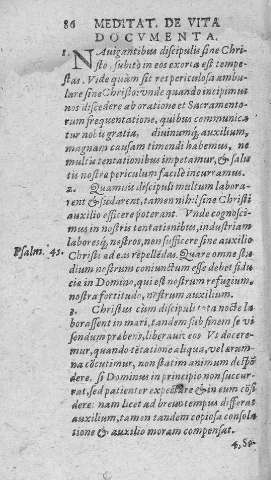 86 MEDITAT. DE VITA
DOCVMENTA.
1. NAuigantibus discipulis sine Chri-
sto, subitò in eos exorta est tempe-
stas. Vide quàm sit res periculosa ambu-
lare sine Christo: vnde quando incipimus
nos discedere ab oratione et Sacramento-
rum frequentatione, quibus communica
tur nobis gratia, diuinumq; auxilium,
magnam causam timendi habemus, ne
multis tentationibus impetamur, & salu
tis nostræ periculum facilè incurramus.
2. Quamuis discipuli multum labora-
rent & sudarent, tamen nihil sine Christi
auxilio efficere poterant. Vnde cognosci-
mus in nostris tentationibus, industriam
laboresq; nostros, non sufficere sine auxilio
Psalm. 45. Christi ad eas repellēdas. Quare omne stu
dium nostrum coniunctum esse debet fidu
cia in Domino, qui est nostrum refugium,
nostra fortitudo, nostrum auxilium.
3. Christus cùm discipuli tota nocte la
borassent in mari, tandem sub finem se vi
sendum præbens, liberauit eos Vt docere-
mur, quando tētatione aliqua, vel ærum
na cōcutimur, non statim animum despō
dere, si Dominus in principio non succur-
rat, sed patienter expectare & in eum cōfi
dere: nam licet ad breue tempus differat
auxilium, tamen tandem copiosa consola
tione & auxilio moram compensat.
4. Se-